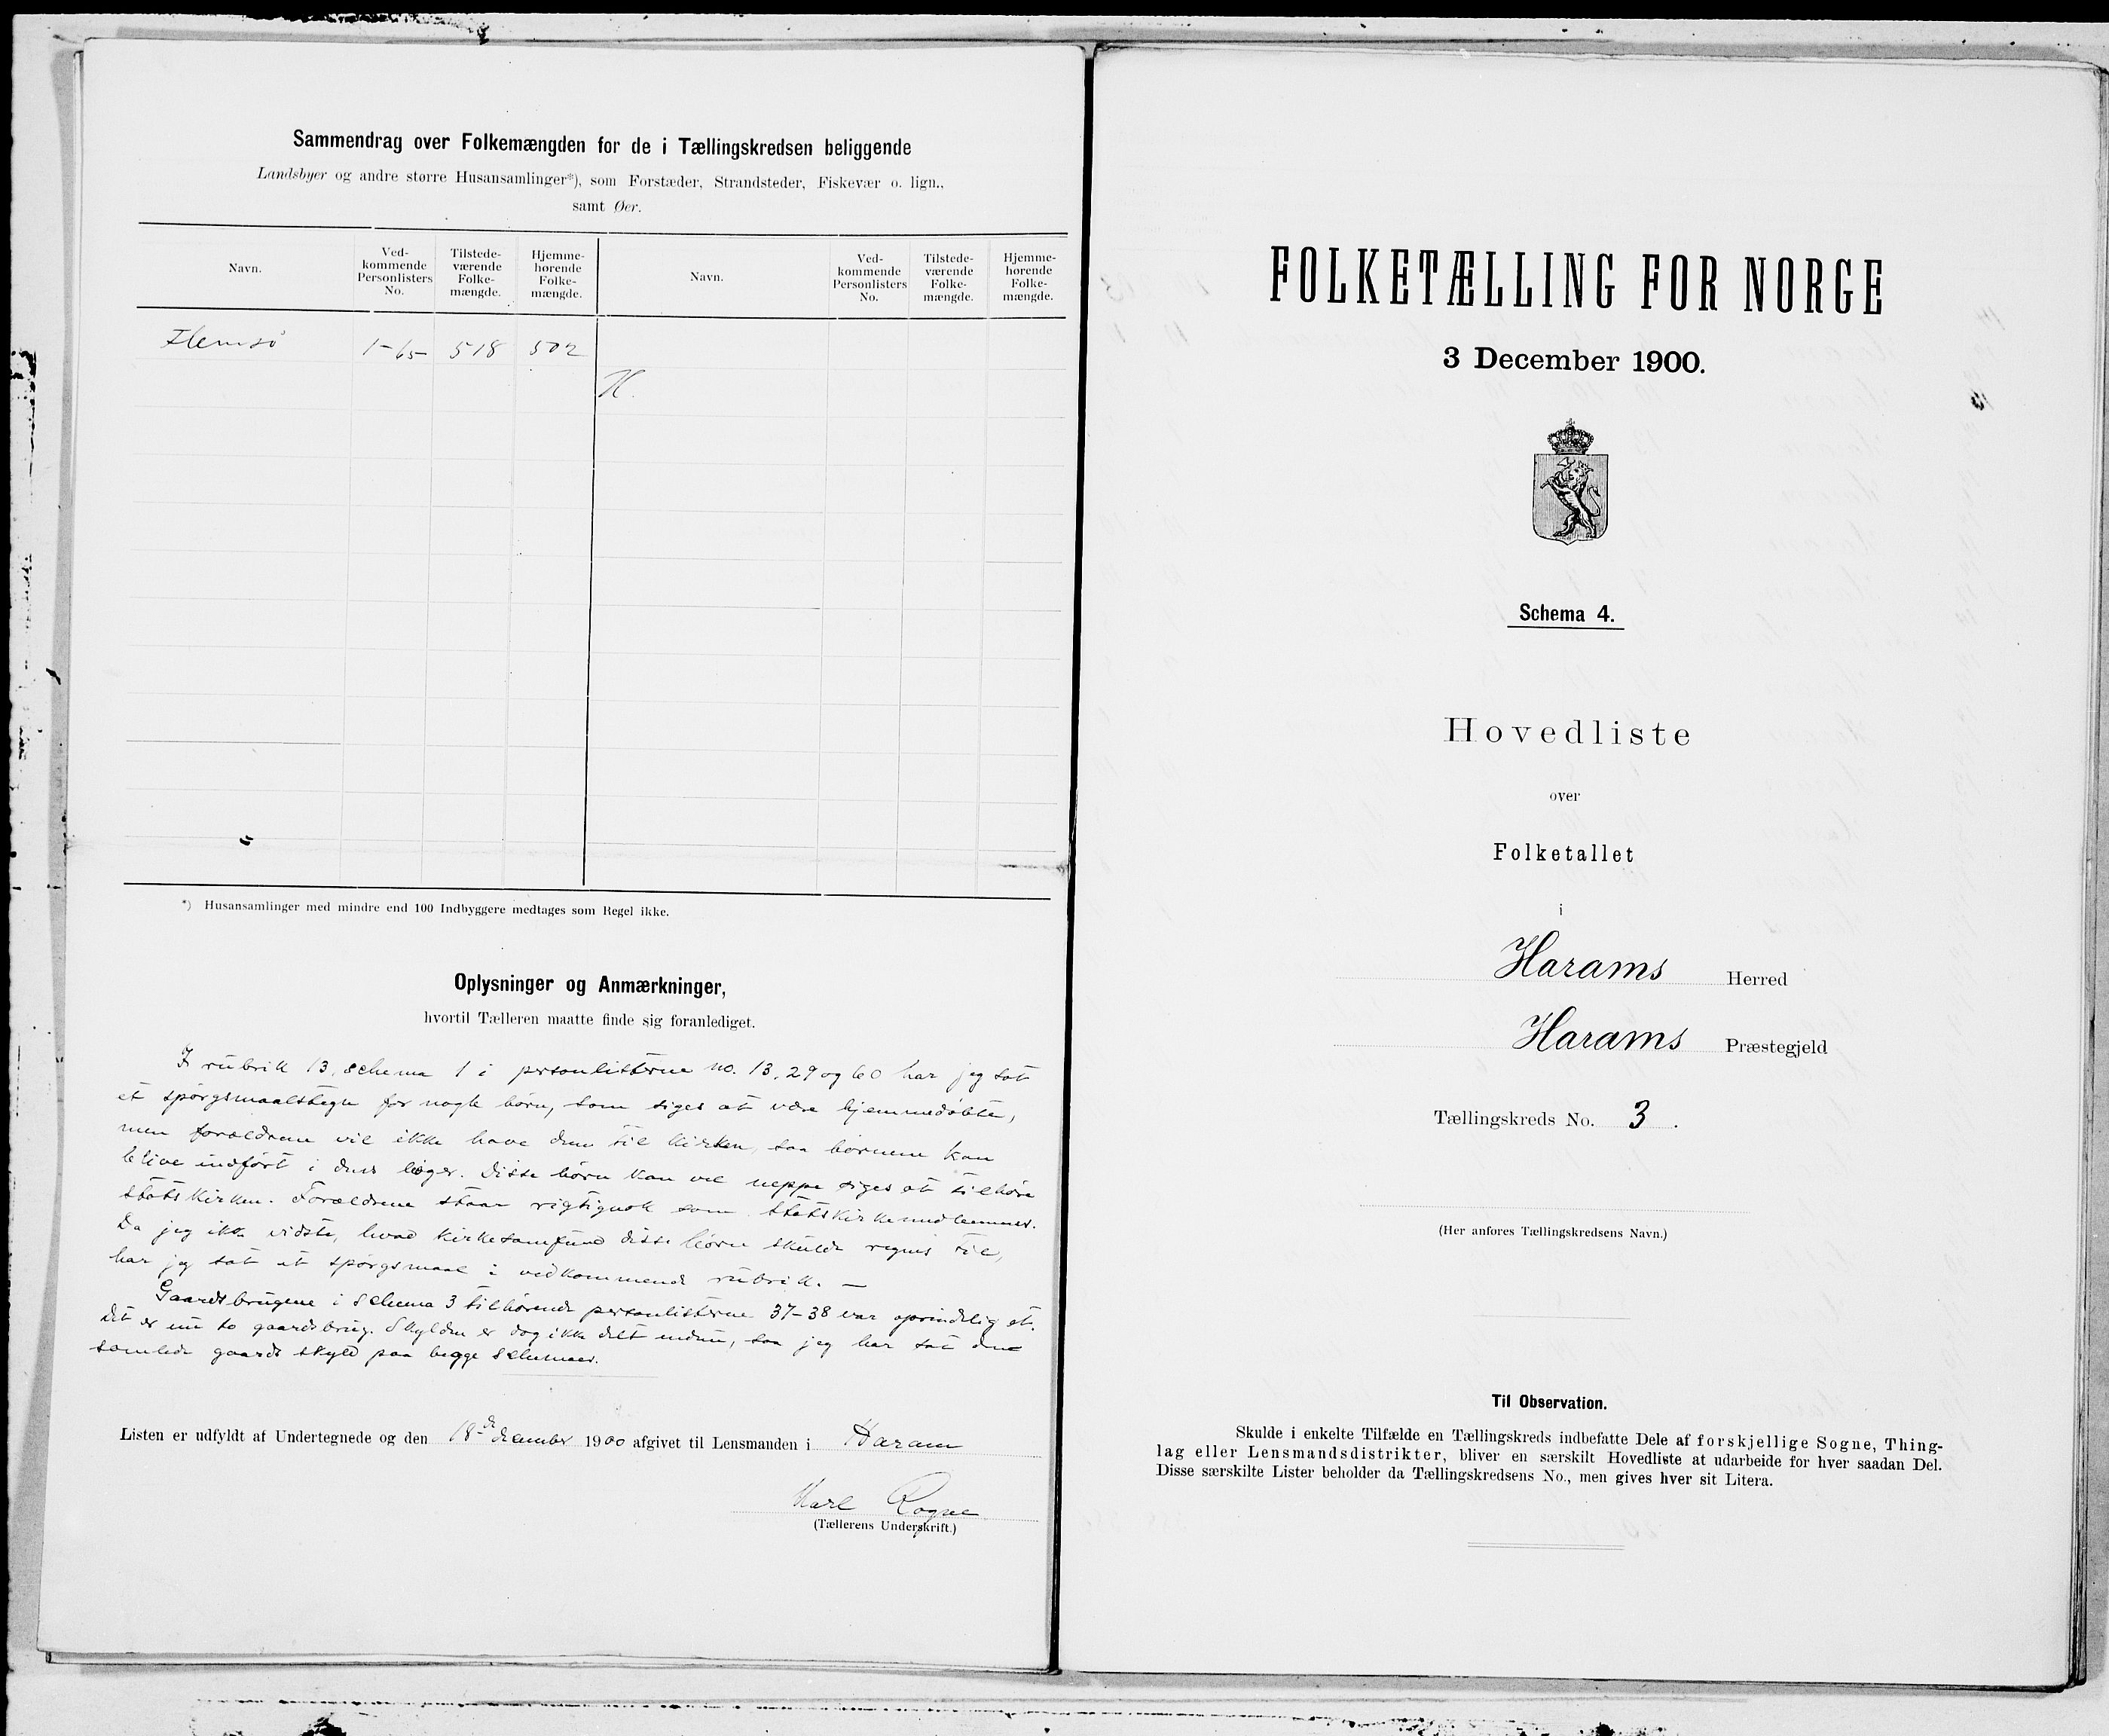 Sammendrag over Folkemængden for de i Tællingskredsen beliggende
Landsbyer og andre større Husansamlinger*), som Forstæder, Strandsteder, Fiskevær o. lign.,
samt Øer.
Navn. Ved-kommende Personlisters No. Tilstede-værende Folke-mængde. Hjemme-hørende Folke-mængde. Navn. Ved-kommende Personlisters No. Tilstede-værende Folke-mængde. Hjemme-hørende Folke-mængde.
Flemsø 1-65 518 502
H.
*) Husansamlinger med mindre end 100 Indbyggere medtages som Regel ikke.
Oplysninger og Anmærkninger,
hvortil Tælleren maatte finde sig foranlediget.
I rubrik 13, schema 1 i personlisterne no. 13, 29 og 60 har jeg sat
et spørgsmaalstegn for nogle børn, som siges at være hjemmedøbte,
men forældrene vil ikke have dem til kirken, saa børnene kan
blive indført i dens bøger. Disse børn kan vel neppe siges at tilhøre
statskirken. Forældrene staar rigtignok som statskirkemedlemmer.
Da jeg ikke vidste, hvad kirkesamfund disse børn skulde regnes til,
har jeg sat et spørgsmaal i vedkommende rubrik. —
Gaardsbrugene i schema 3 tilhørende personlisterne 37-38 var oprindelig et.
Det er nu to gaardsbrug. Skylden er dog ikke delt endnu, saa jeg har sat den
samlede gaards skyld paa begge schemaer.
Listen er udfyldt af Undertegnede og den 18de december 1900 afgivet til Lensmanden i Haram
Karl Rogne
(Tællerens Underskrift.)
FOLKETÆLLING FOR NORGE
3 December 1900.
Schema 4.
Hovedliste
over
Folketallet
i
Harams Herred
Harams Præstegjeld
Tællingskreds No. 3.
(Her anføres Tællingskredsens Navn.)
Til Observation.
Skulde i enkelte Tilfælde en Tællingskreds indbefatte Dele af forskjellige Sogne, Thing-
lag eller Lensmandsdistrikter, bliver en særskilt Hovedliste at udarbeide for hver saadan Del.
Disse særskilte Lister beholder da Tællingskredsens No., men gives hver sit Litera.